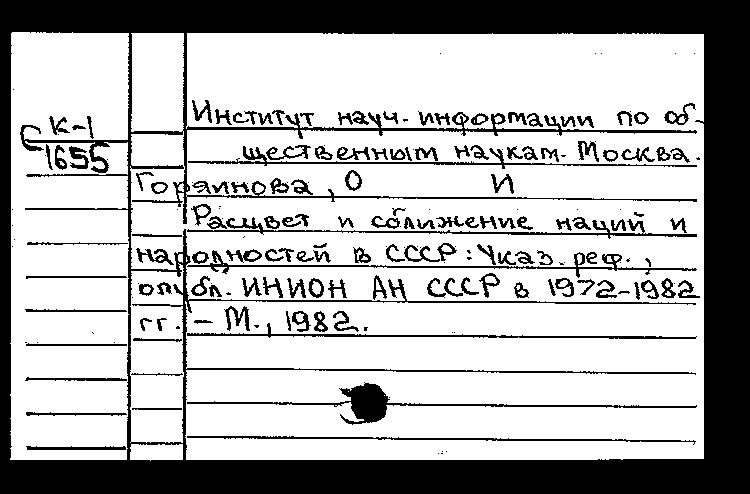 Институт науч. информации по об-
щественным наукам. Москва.
К-1
1655
Горяинова, О И
Расцвет и сближение наций и
народностей в СССР: Указ. реф.,
опубл. ИНИОН АН СССР в 1972-1982
гг. - М., 1982.